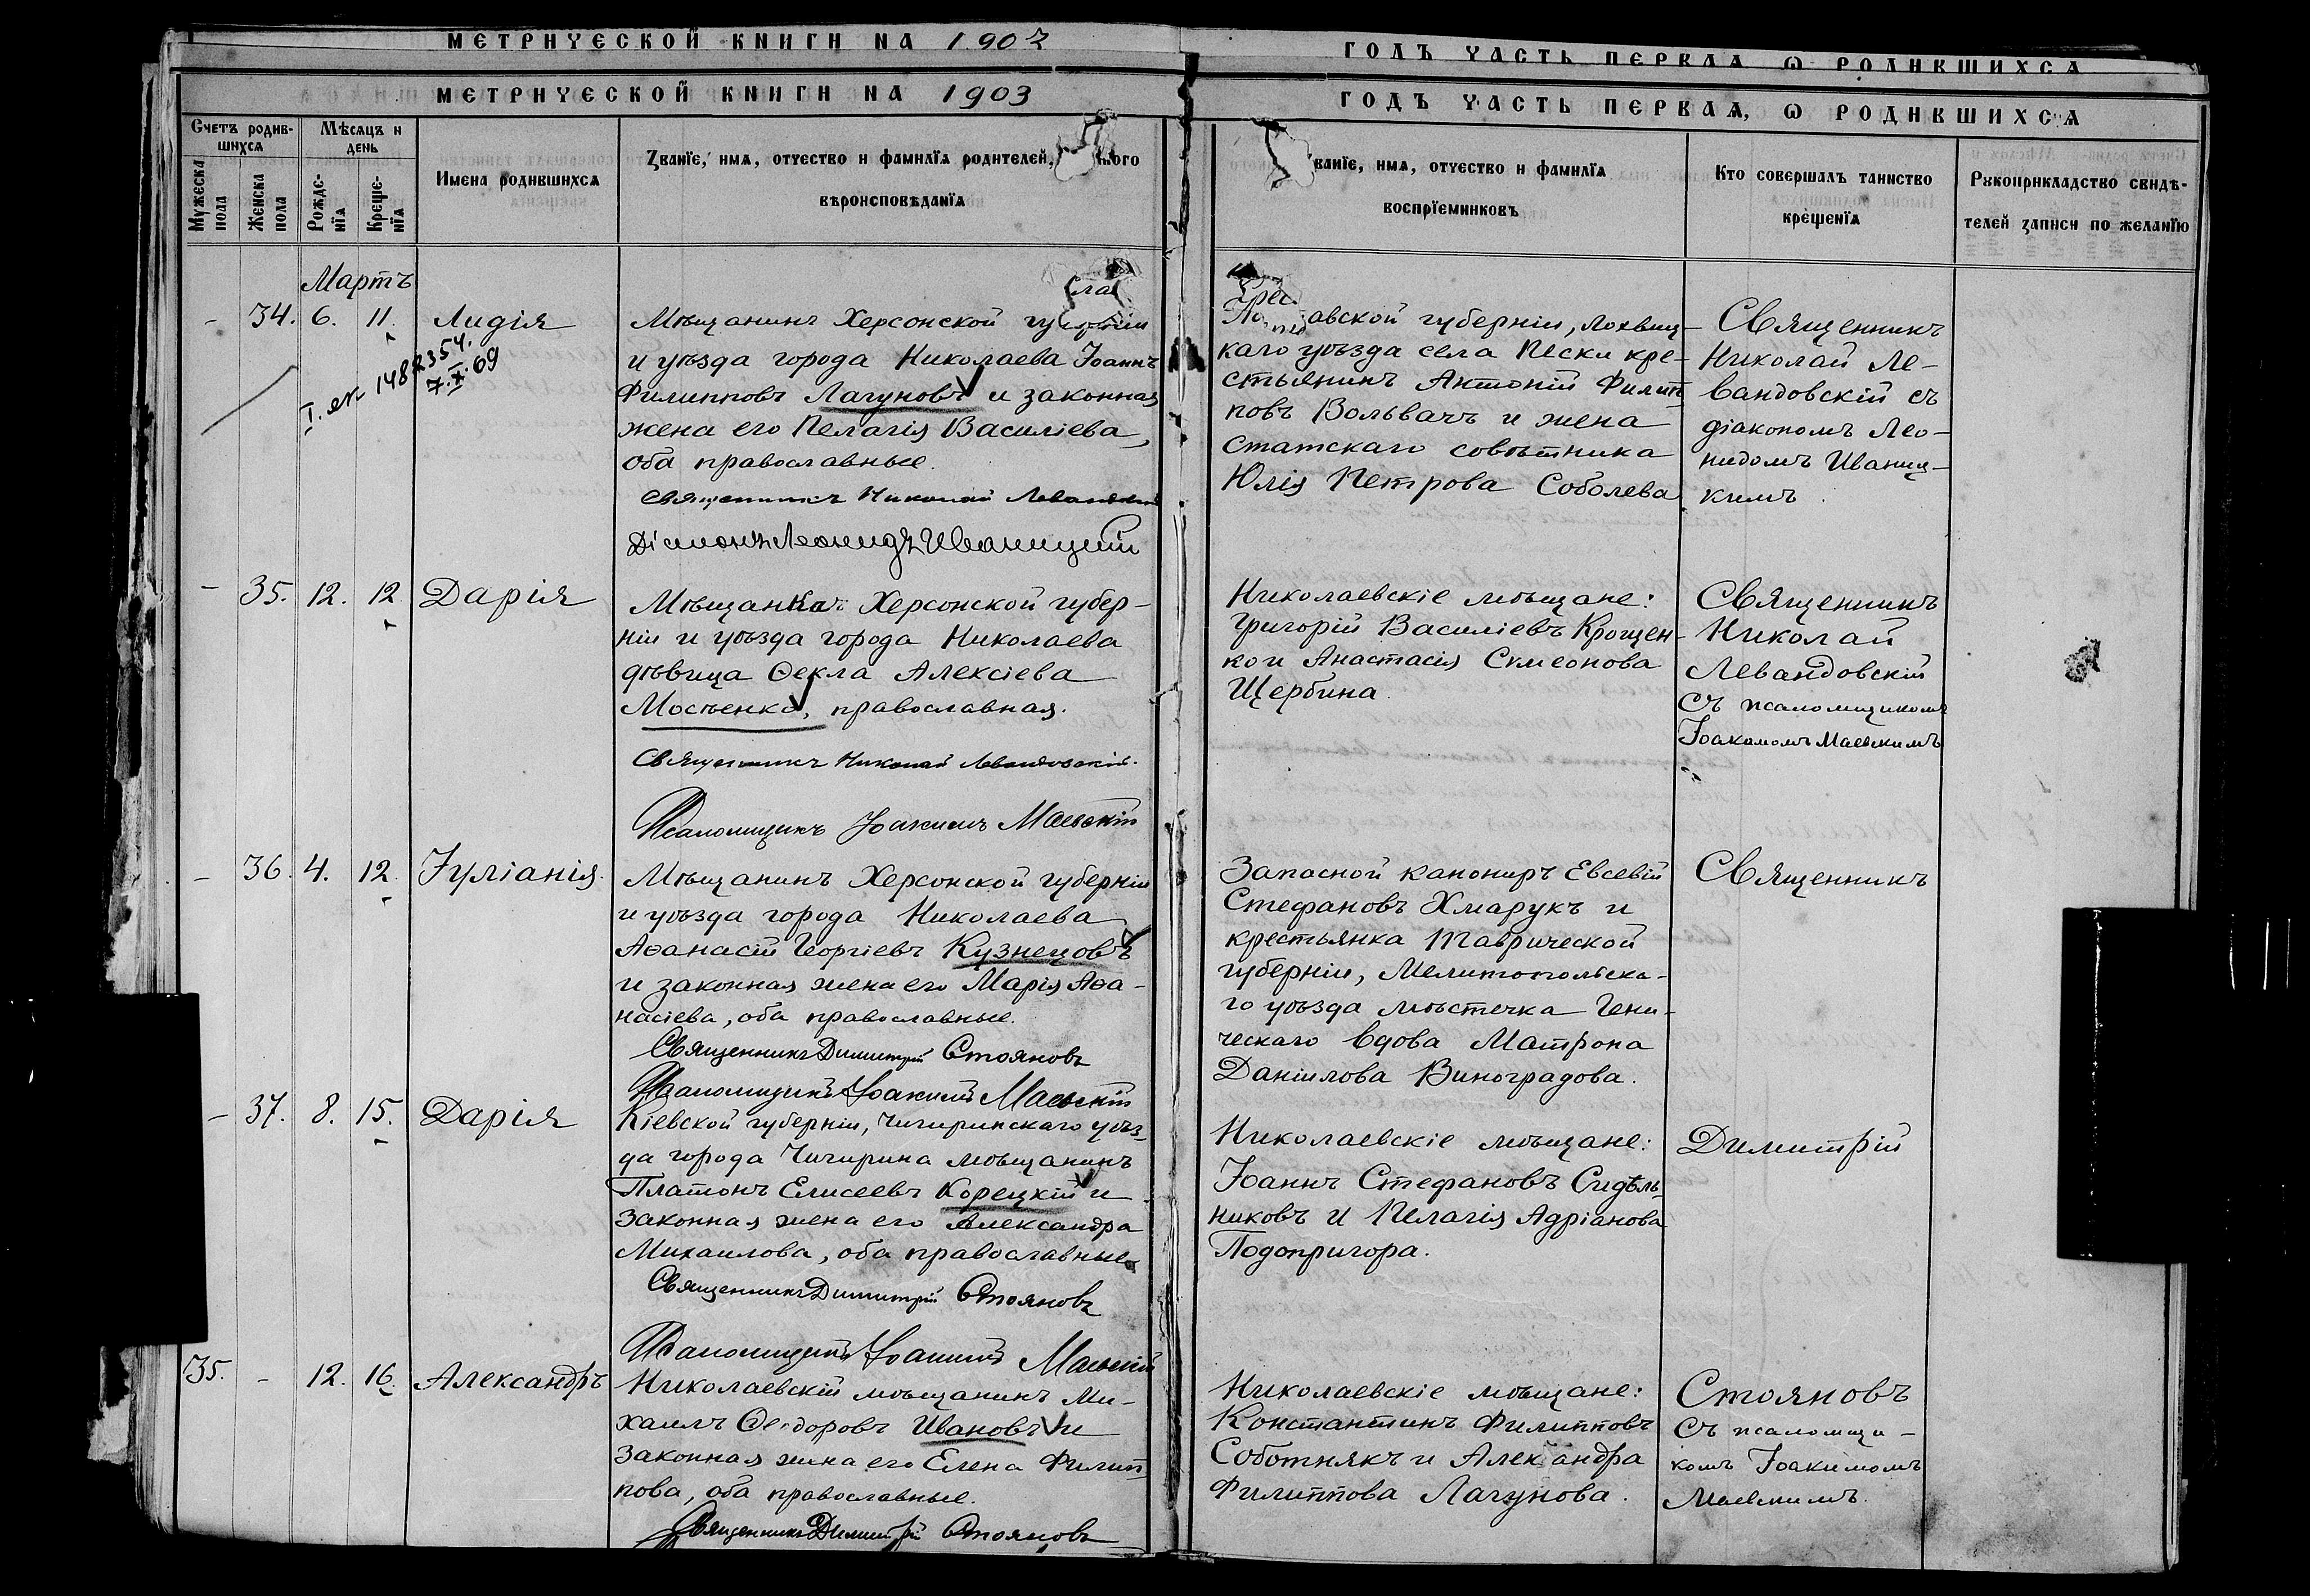 МЕТРИЧЕСКОЙ КНИГИ НА 1902
ГОДЪ ЧАСТЬ ПЕРВАЯ Ѡ РОДИВШИХСЯ
МЕТРИЧЕСКОЙ КНИГИ НА 1903
ГОДЪ ЧАСТЬ ПЕРВАЯ, Ѡ РОДИВШИХСЯ
Счетъ родив-
шихся
Мужеска
пола
Женска
пола
Мѣсяцъ и
день
Рожде-
нїя
Креще-
нїя
Имена родившихся
Званїе, имя, отчество и фамилїя родителей,
вѣроисповѣданїя
ванїе, имя, отчество и фамилїя
воспрїемниковъ
Кто совершалъ таинство
крещенїя
Рукоприкладство свидѣ-
телей записи по желанїю
Мартъ
- 34. 6. 11. Лидія
I. ЯК 1482354.
7.X.69
Мѣщанинъ Херсонской губерніи
и уѣзда города Николаева Іоаннъ
Филипповъ Лагуновъ и законная
жена его Пелагія Василіева,
оба православные.
Священникъ Николай Левандовскій
Діаконъ Леонидъ Иваницкій
авской губерніи, Лохвиц-
каго уѣзда села Пески кре-
стьянинъ Антоній Филип-
повъ Вольвачъ и жена
статскаго совѣтника
Юлія Петрова Соболева
Священникъ
Николай Ле-
вандовскій съ
діакономъ Лео-
нидомъ Иваниц-
кимъ.
- 35. 12. 12 Дарія
Мѣщанка Херсонской губер-
ніи и уѣзда города Николаева
дѣвица Ѳекла Алексіева
Мосѣенко, православная.
Священникъ Николай Левандовскій.
Псаломщикъ Іоакимъ Маевскій
Николаевскіе мѣщане:
Григорій Василіевъ Крощен-
ко и Анастасія Симеонова
Щербина.
Священникъ
Николай
Левандовскій
съ псаломщикомъ
Іоакимомъ Маевскимъ
- 36. 4. 12. Іуліанія.
Мѣщанинъ Херсонской губерніи
и уѣзда города Николаева
Аѳанасій Георгіевъ Кузнецовъ
и законная жена его Марія Аѳа-
насіева, оба православные.
Священникъ Димитрій Стояновъ
Псаломщикъ Іоакимъ Маевскій
Запасной канониръ Евсевій
Стефановъ Хмарукъ и
крестьянка Таврической
губерніи, Мелитопольска-
го уѣзда мѣстечка Гени-
ческаго вдова Матрона
Даніилова Виноградова.
Священникъ
- 37. 8. 15. Дарія
Кіевской губерніи, Чигиринскаго уѣз-
да города Чигирина мѣщанинъ
Платонъ Елисеевъ Корецкій и
законная жена его Александра
Михаилова, оба православные
Священникъ Димитрій Стояновъ
Псаломщикъ Іоакимъ Маевскій
Николаевскіе мѣщане:
Іоаннъ Стефановъ Сидѣль-
никовъ и Пелагія Адріанова
Подопригора.
Димитрій
35. - 12. 16. Александръ
Николаевскій мѣщанинъ Ми-
хаилъ Ѳеодоровъ Ивановъ и
законная жена его Елена Филип-
пова, оба православные.
Священникъ Димитрій Стояновъ
Николаевскіе мѣщане:
Константинъ Филипповъ
Соботнякъ и Александра
Филиппова Лагунова.
Стояновъ
съ псаломщи-
комъ Іоакимомъ
Маевскимъ.